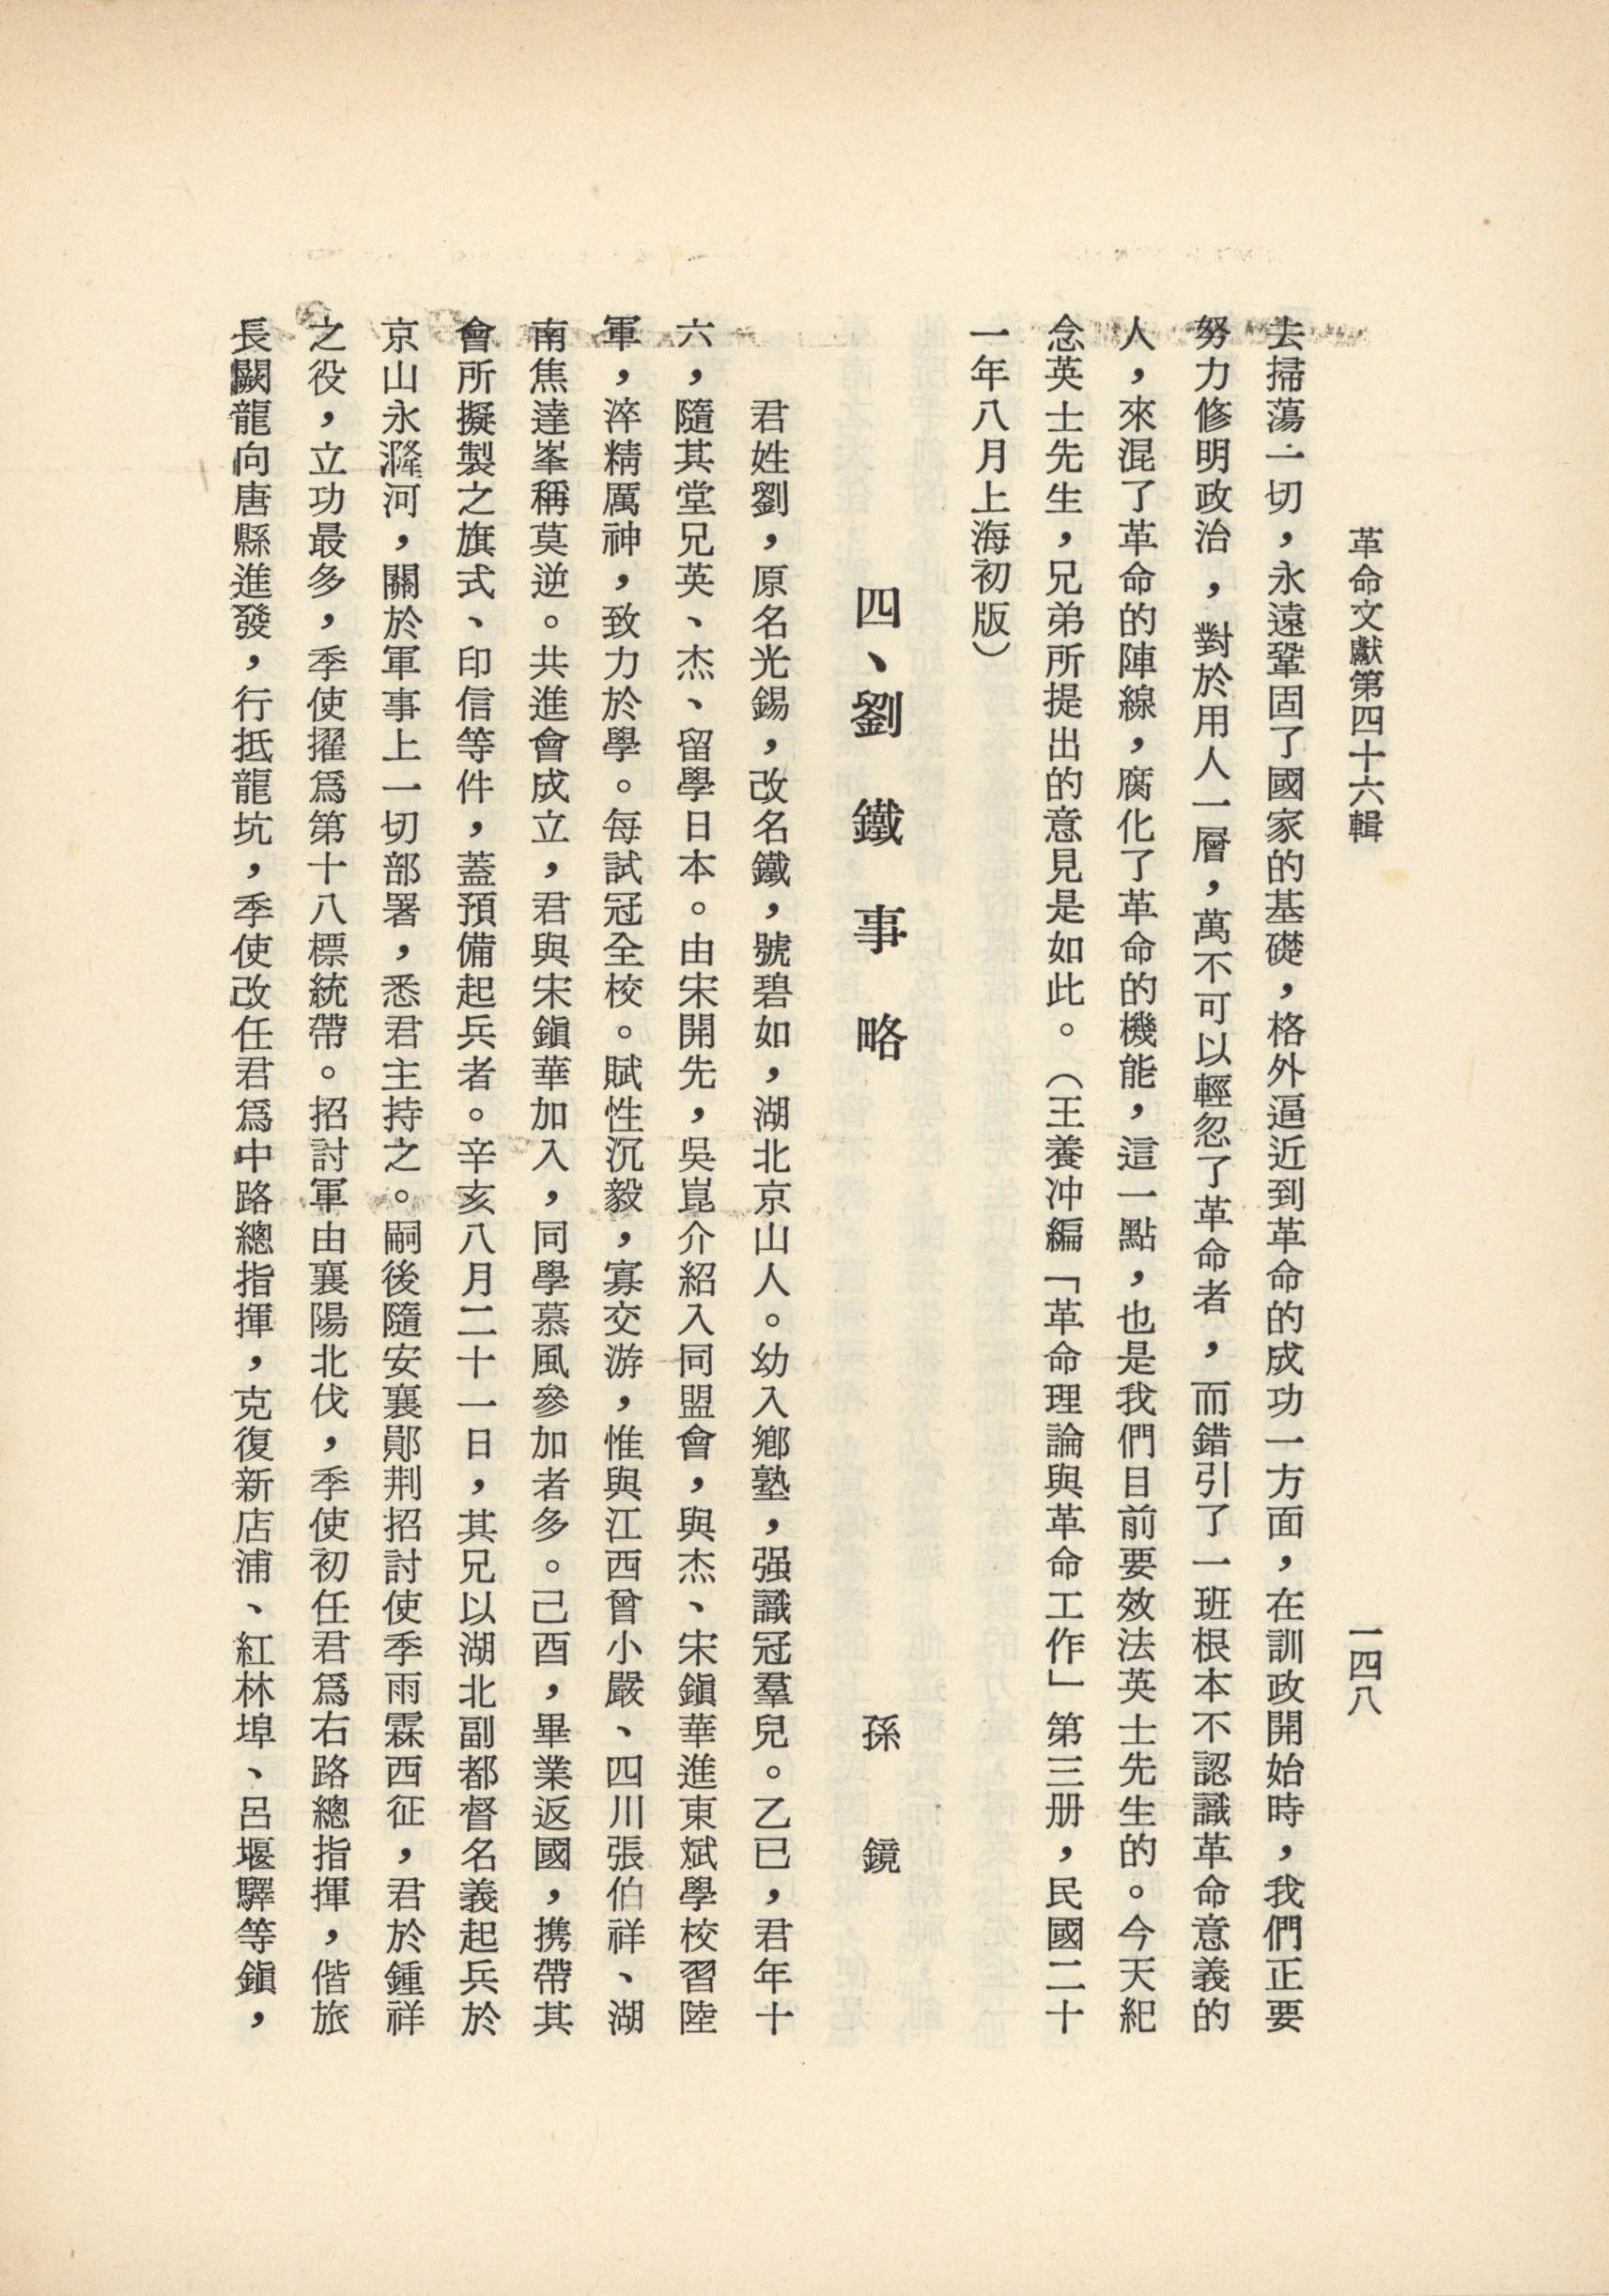 革命文獻第四十六輯
一四八
去掃蕩一切，永遠鞏固了國家的基礎，格外逼近到革命的成功一方面，在訓政開始時，我們正要
努力修明政治，對於用人一層，萬不可以輕忽了革命者，而錯引了一班根本不認識革命意義的
人，來混了革命的陣線，腐化了革命的機能，這一點，也是我們目前要效法英士先生的。今天紀
念英士先生，兄弟所提出的意見是如此。（王養冲編「革命理論與革命工作」第三册，民國二十
一年八月上海初版）
四、劉鐵事略
孫鏡
君姓劉，原名光錫，改名鐵，號碧如，湖北京山人。幼入鄉塾，强識冠羣兒。乙巳，君年十
六，隨其堂兄英、杰、留學日本。由宋開先，吳崑介紹入同盟會，與杰、宋鎭華進東斌學校習陸
軍，淬精厲神，致力於學。每試冠全校。賦性沉毅，寡交游，惟與江西曾小嚴、四川張伯祥、湖
南焦達峯稱莫逆。共進會成立，君與宋鎭華加入，同學慕風參加者多。己酉，畢業返國，携帶其
會所擬製之旗式、印信等件，蓋預備起兵者。辛亥八月二十一日，其兄以湖北副都督名義起兵於
京山永漋河，關於軍事上一切部署，悉君主持之。嗣後隨安襄鄖荆招討使季雨霖西征，君於鍾祥
之役，立功最多，季使擢爲第十八標統帶。招討軍由襄陽北伐，季使初任君爲右路總指揮，偕旅
長闞龍向唐縣進發，行抵龍坑，季使改任君爲中路總指揮，克復新店浦、紅林埠、呂堰驛等鎭，